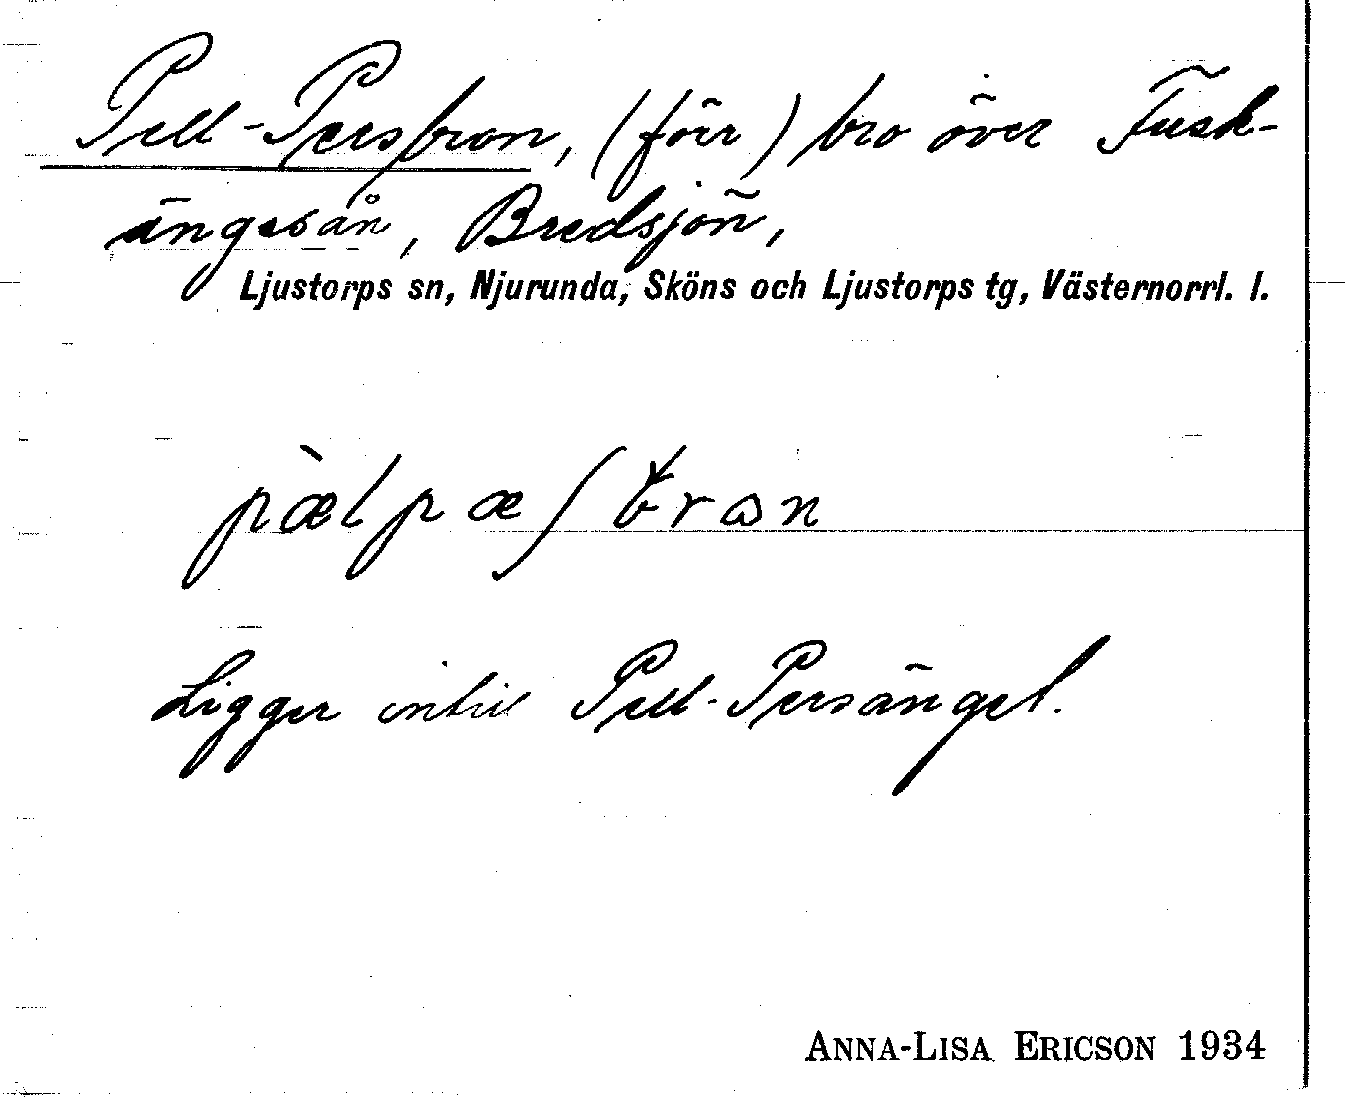 Pell-Persbron, (förr) bro över Fusk-
ängesån, Bredsjön,
Ljustorps sn, Njurunda, Sköns och Ljustorps tg, Västernorrl. l.
pæ̀lpæʃbrɷn
Ligger intill Pell-Persänget.
ANNA-LISA ERICSON 1934